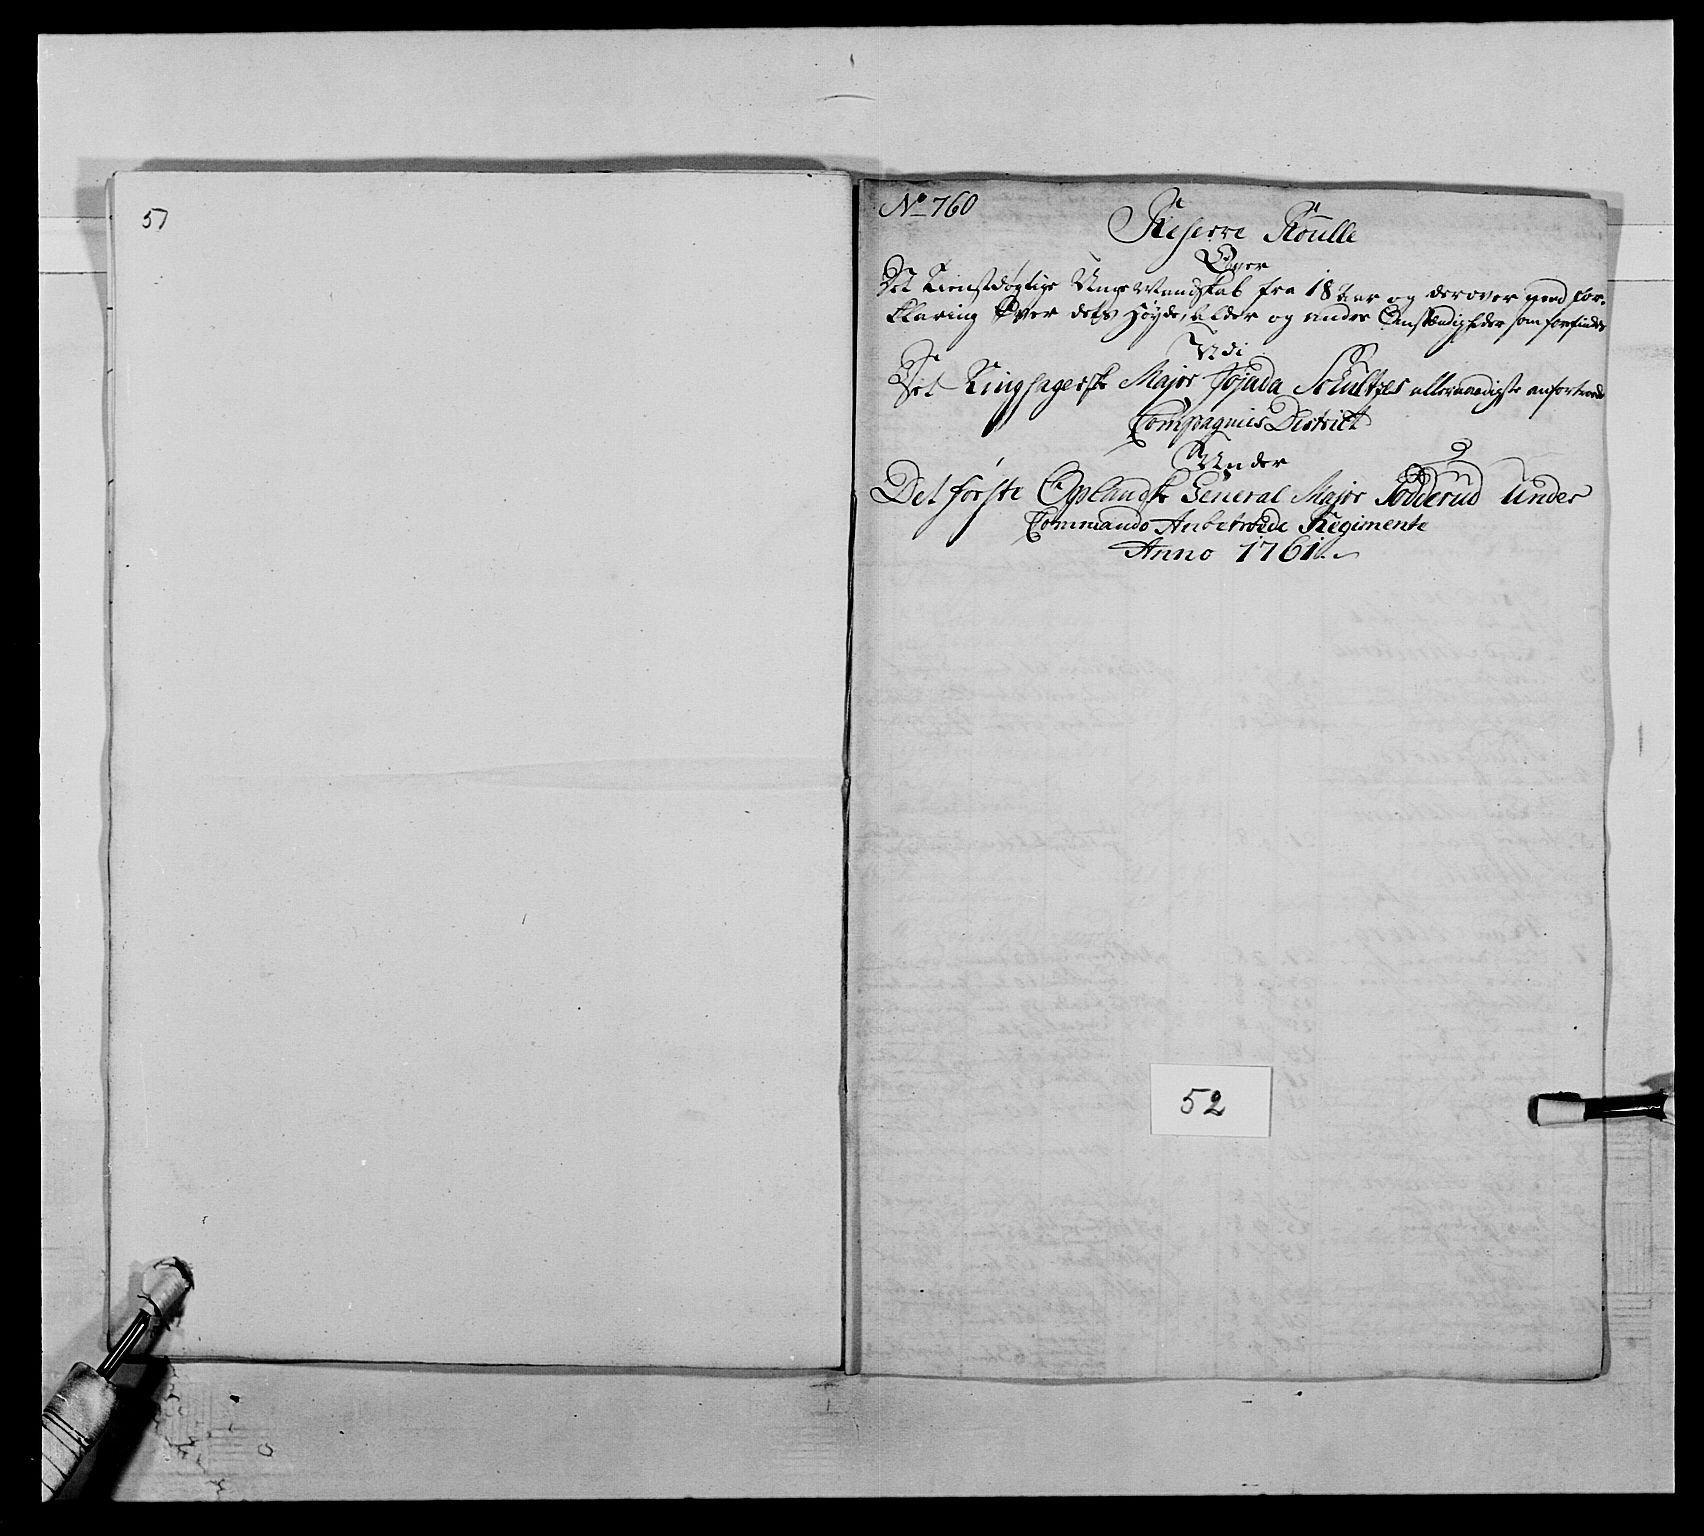 51
No 760
Reserve Roulle
Over
Det Tienstdøgtige Unge Mandskab fra 18 Aar og derover med for-
klaring Over deres Høyde, alder og andre Omstændigheder som forfindes
Udi
Det Ringsagerske Major Jojada Schultzes allernaadigste anfortroede
Compagnies District
Under
Det første Oplandske General Major Rodderud under
Commando Anbetroede Regimente
Anno 1761.
52